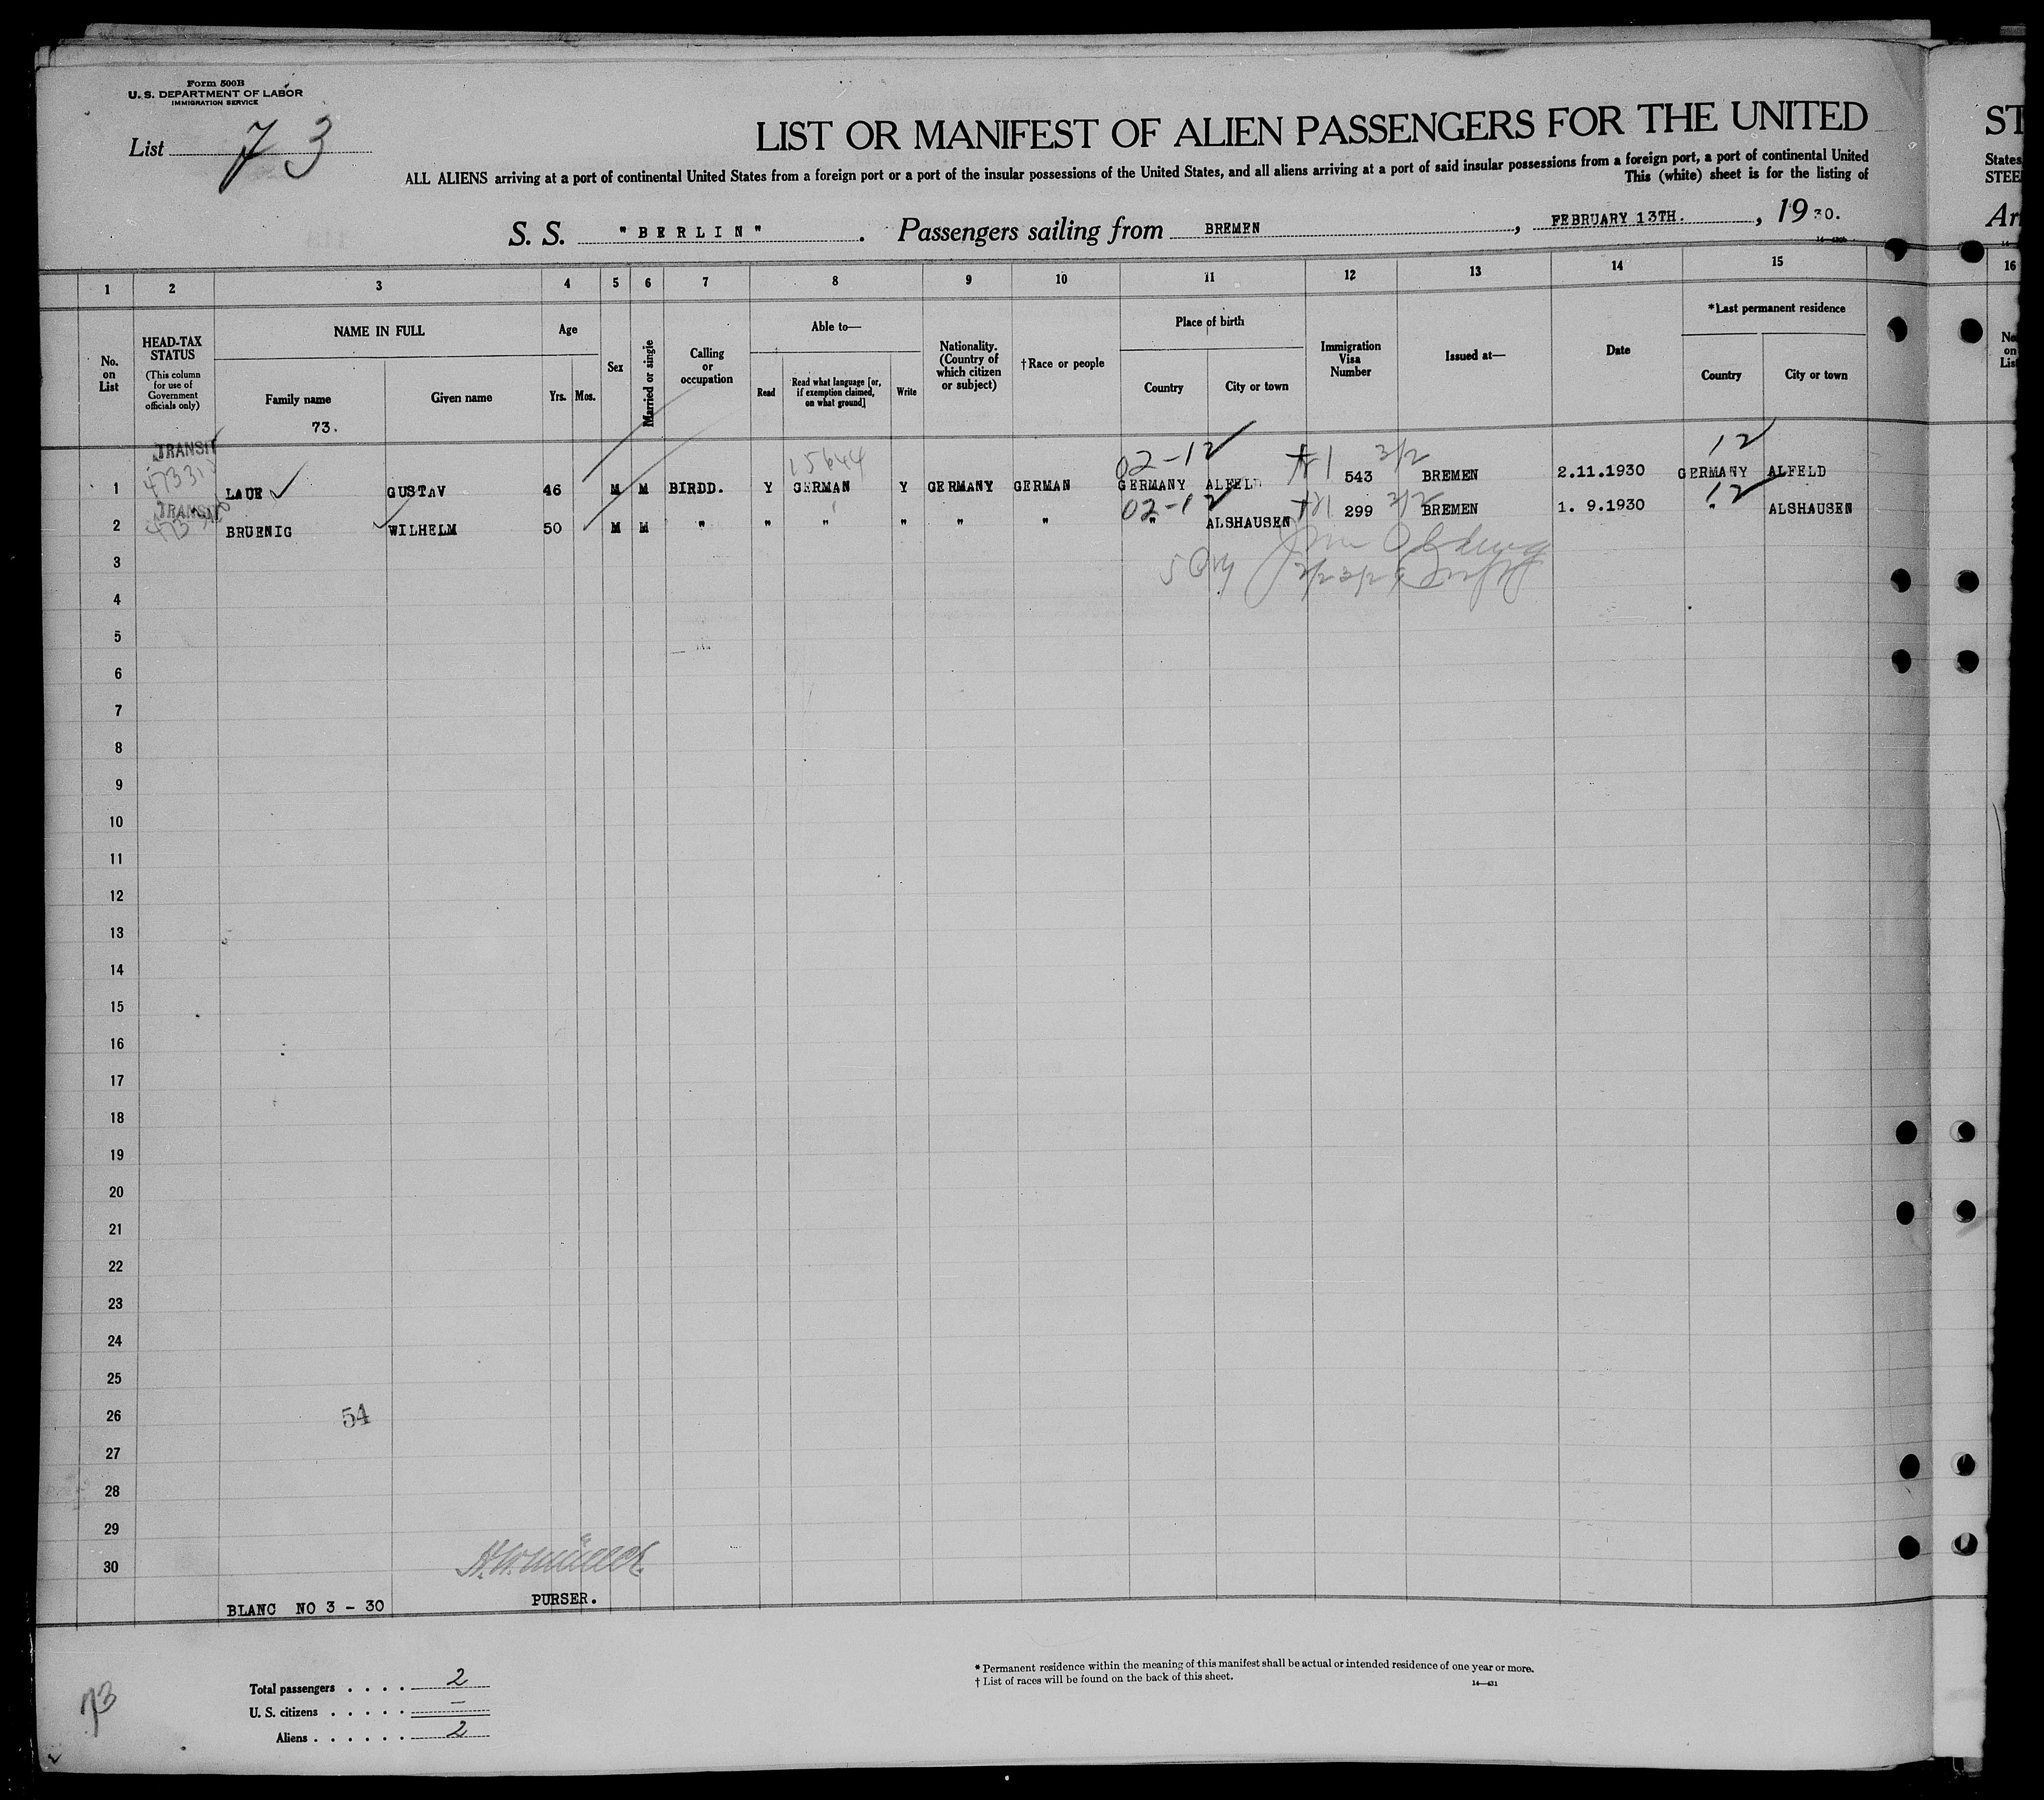 Form 500B
U. S. DEPARTMENT OF LABOR
IMMIGRATION SERVICE
List 73
LIST OR MANIFEST OF ALIEN PASSENGERS FOR THE UNITED
ST
ALL ALIENS arriving at a port of continental United States from a foreign port or a port of the insular possessions of the United States, and all aliens arriving at a port of said insular possessions from a foreign port, a port of continental United
States
This (white) sheet is for the listing of
STEE
S. S. "BERLIN" . Passengers sailing from BREMEN, FEBRUARY 13TH., 1930.
Ar
1 2 3 4 5 6 7 8 9 10 11 12 13 14 15 16
No. on List
HEAD-TAX STATUS
(This column for use of Government officials only)
NAME IN FULL
Family name
Given name
73.
Age
Yrs. Mos.
Sex
Married or single
Calling or occupation
Able to—
Read
Read what language [or, if exemption claimed, on what ground]
Write
Nationality. (Country of which citizen or subject)
†Race or people
Place of birth
Country
City or town
Immigration Visa Number
Issued at—
Date
*Last permanent residence
Country
City or town
No. on List
TRANSIT 15644 02-12 3/2 12
1 LAUE GUSTAV 46 M M BIRDD. Y GERMAN Y GERMANY GERMAN GERMANY ALFELD 543 BREMEN 2.11.1930 GERMANY ALFELD
TRANSIT 02-12 3/2 12
2 BRUENIG WILHELM 50 M M " " " " " " " ALSHAUSEN 299 BREMEN 1. 9.1930 " ALSHAUSEN
3
4
5
6
7
8
9
10
11
12
13
14
15
16
17
18
19
20
21
22
23
24
25
26 54
27
28
29
30
BLANC NO 3 - 30 PURSER.
Total passengers . . . . 2
U. S. citizens . . . . . —
Aliens . . . . . . 2
73
* Permanent residence within the meaning of this manifest shall be actual or intended residence of one year or more.
† List of races will be found on the back of this sheet.
14—431